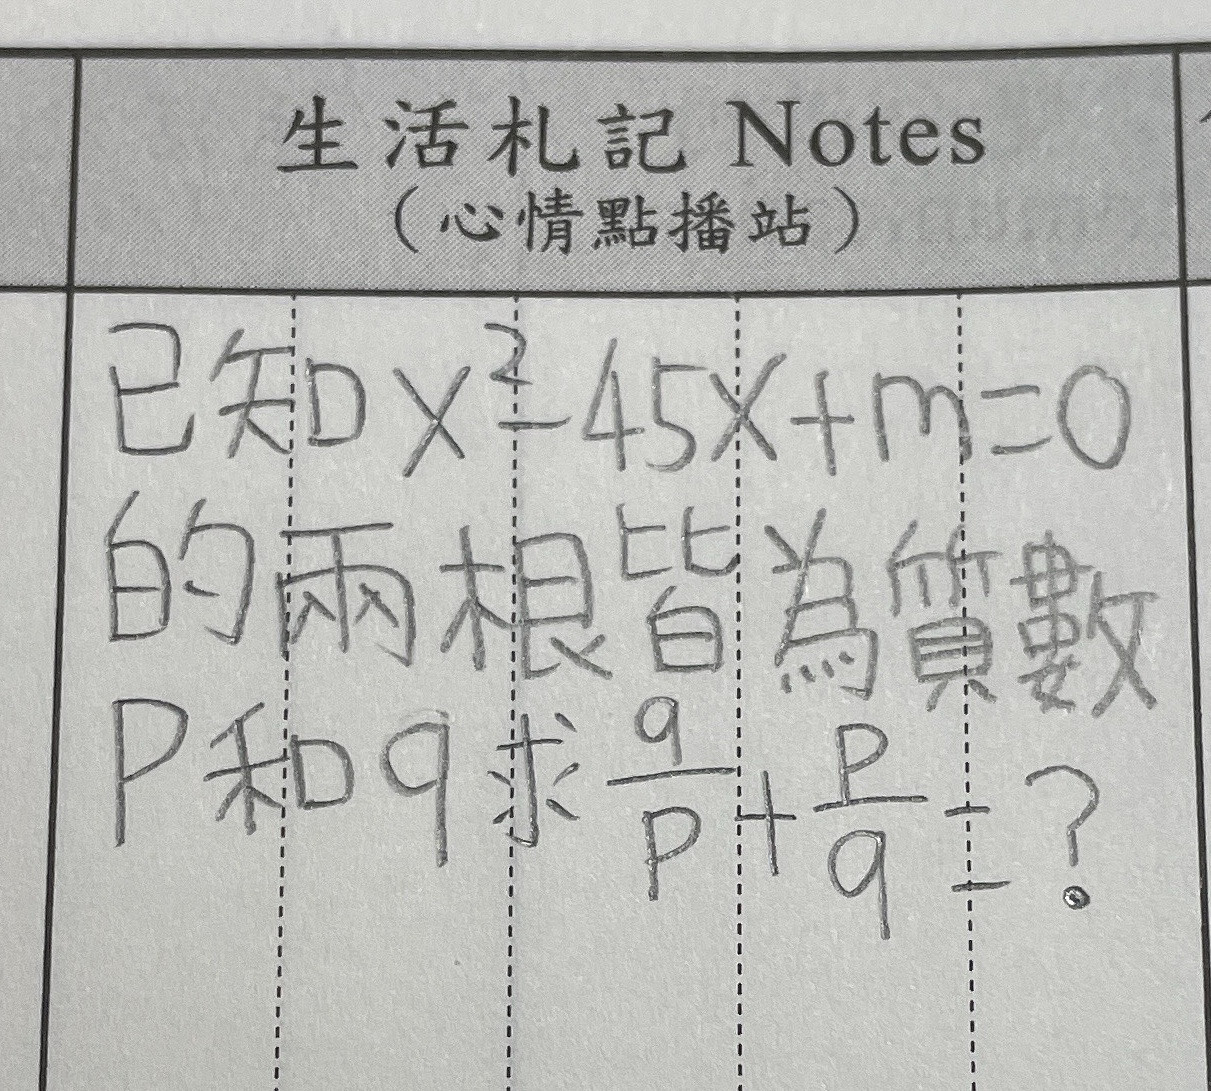 生活札記 Notes
(心情點播站)
已知 x²-45x+m=0
的兩根皆為質數
P和q求 q/p + p/q = ?